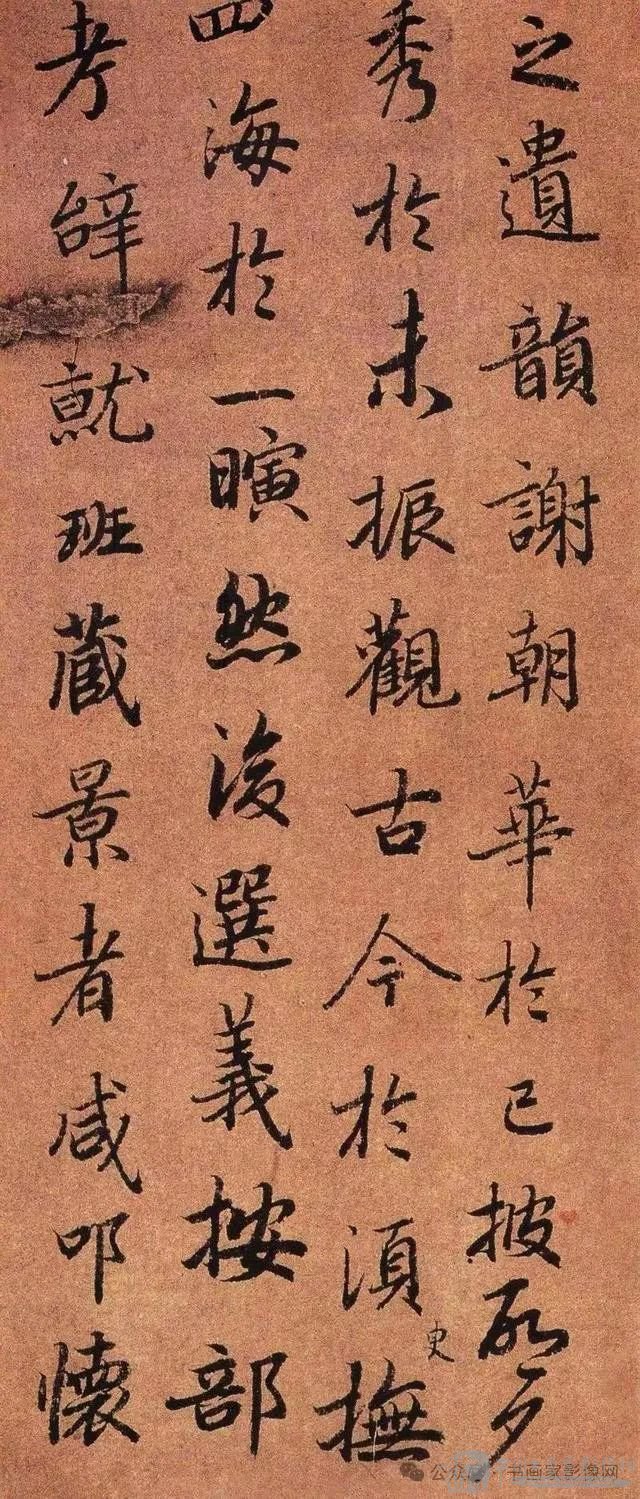 之遺韻謝朝華於已披啓夕
秀於未振觀古今於須臾撫
四海於一瞚然後選義按部
考辝就班藏景者咸叩懷
公众号 · 书画家影像网